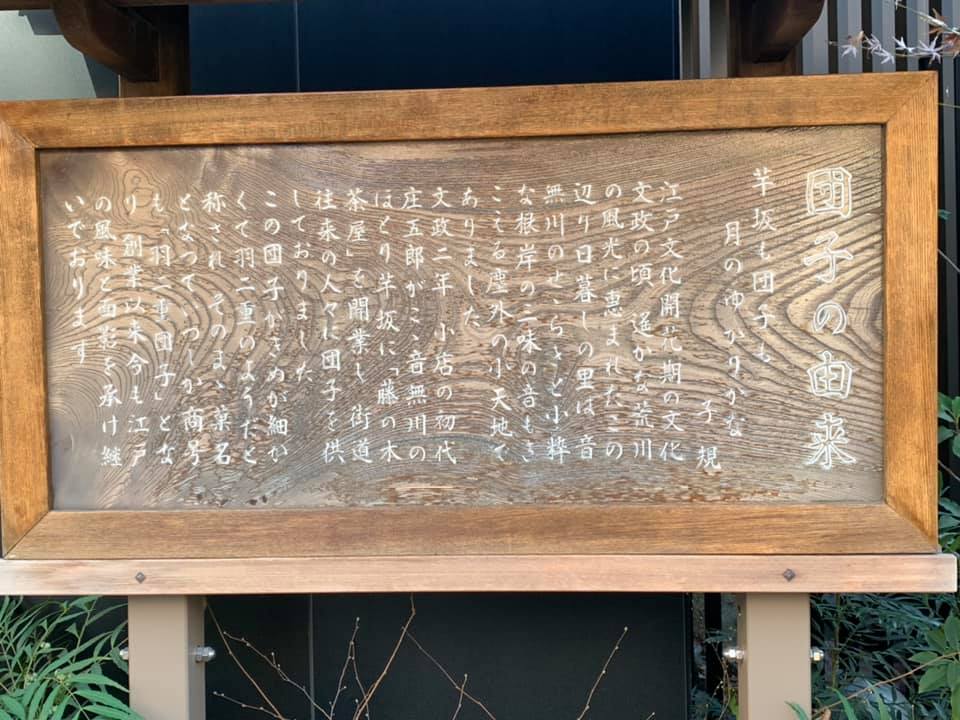 団子の由来
芋坂も団子も
月のゆかりかな
子規
江戸文化開花期の文化
文政の頃 遥かな荒川
の風光に恵まれたこの
辺り日暮しの里は 音
無川のせゝらぎと小粋
な根岸の三味の音もき
こえる塵外の小天地で
ありました
文政二年 小店の初代
庄五郎がこゝ音無川の
ほとり芋坂に「藤の木
茶屋」を開業し 街道
往来の人々に団子を供
しておりました
この団子がきめが細か
くて羽二重のようだと
称され そのまゝ菓名
となって、いつしか商号
も「羽二重団子」とな
り 創業以来今も江戸
の風味と面影を承け継
いでおります